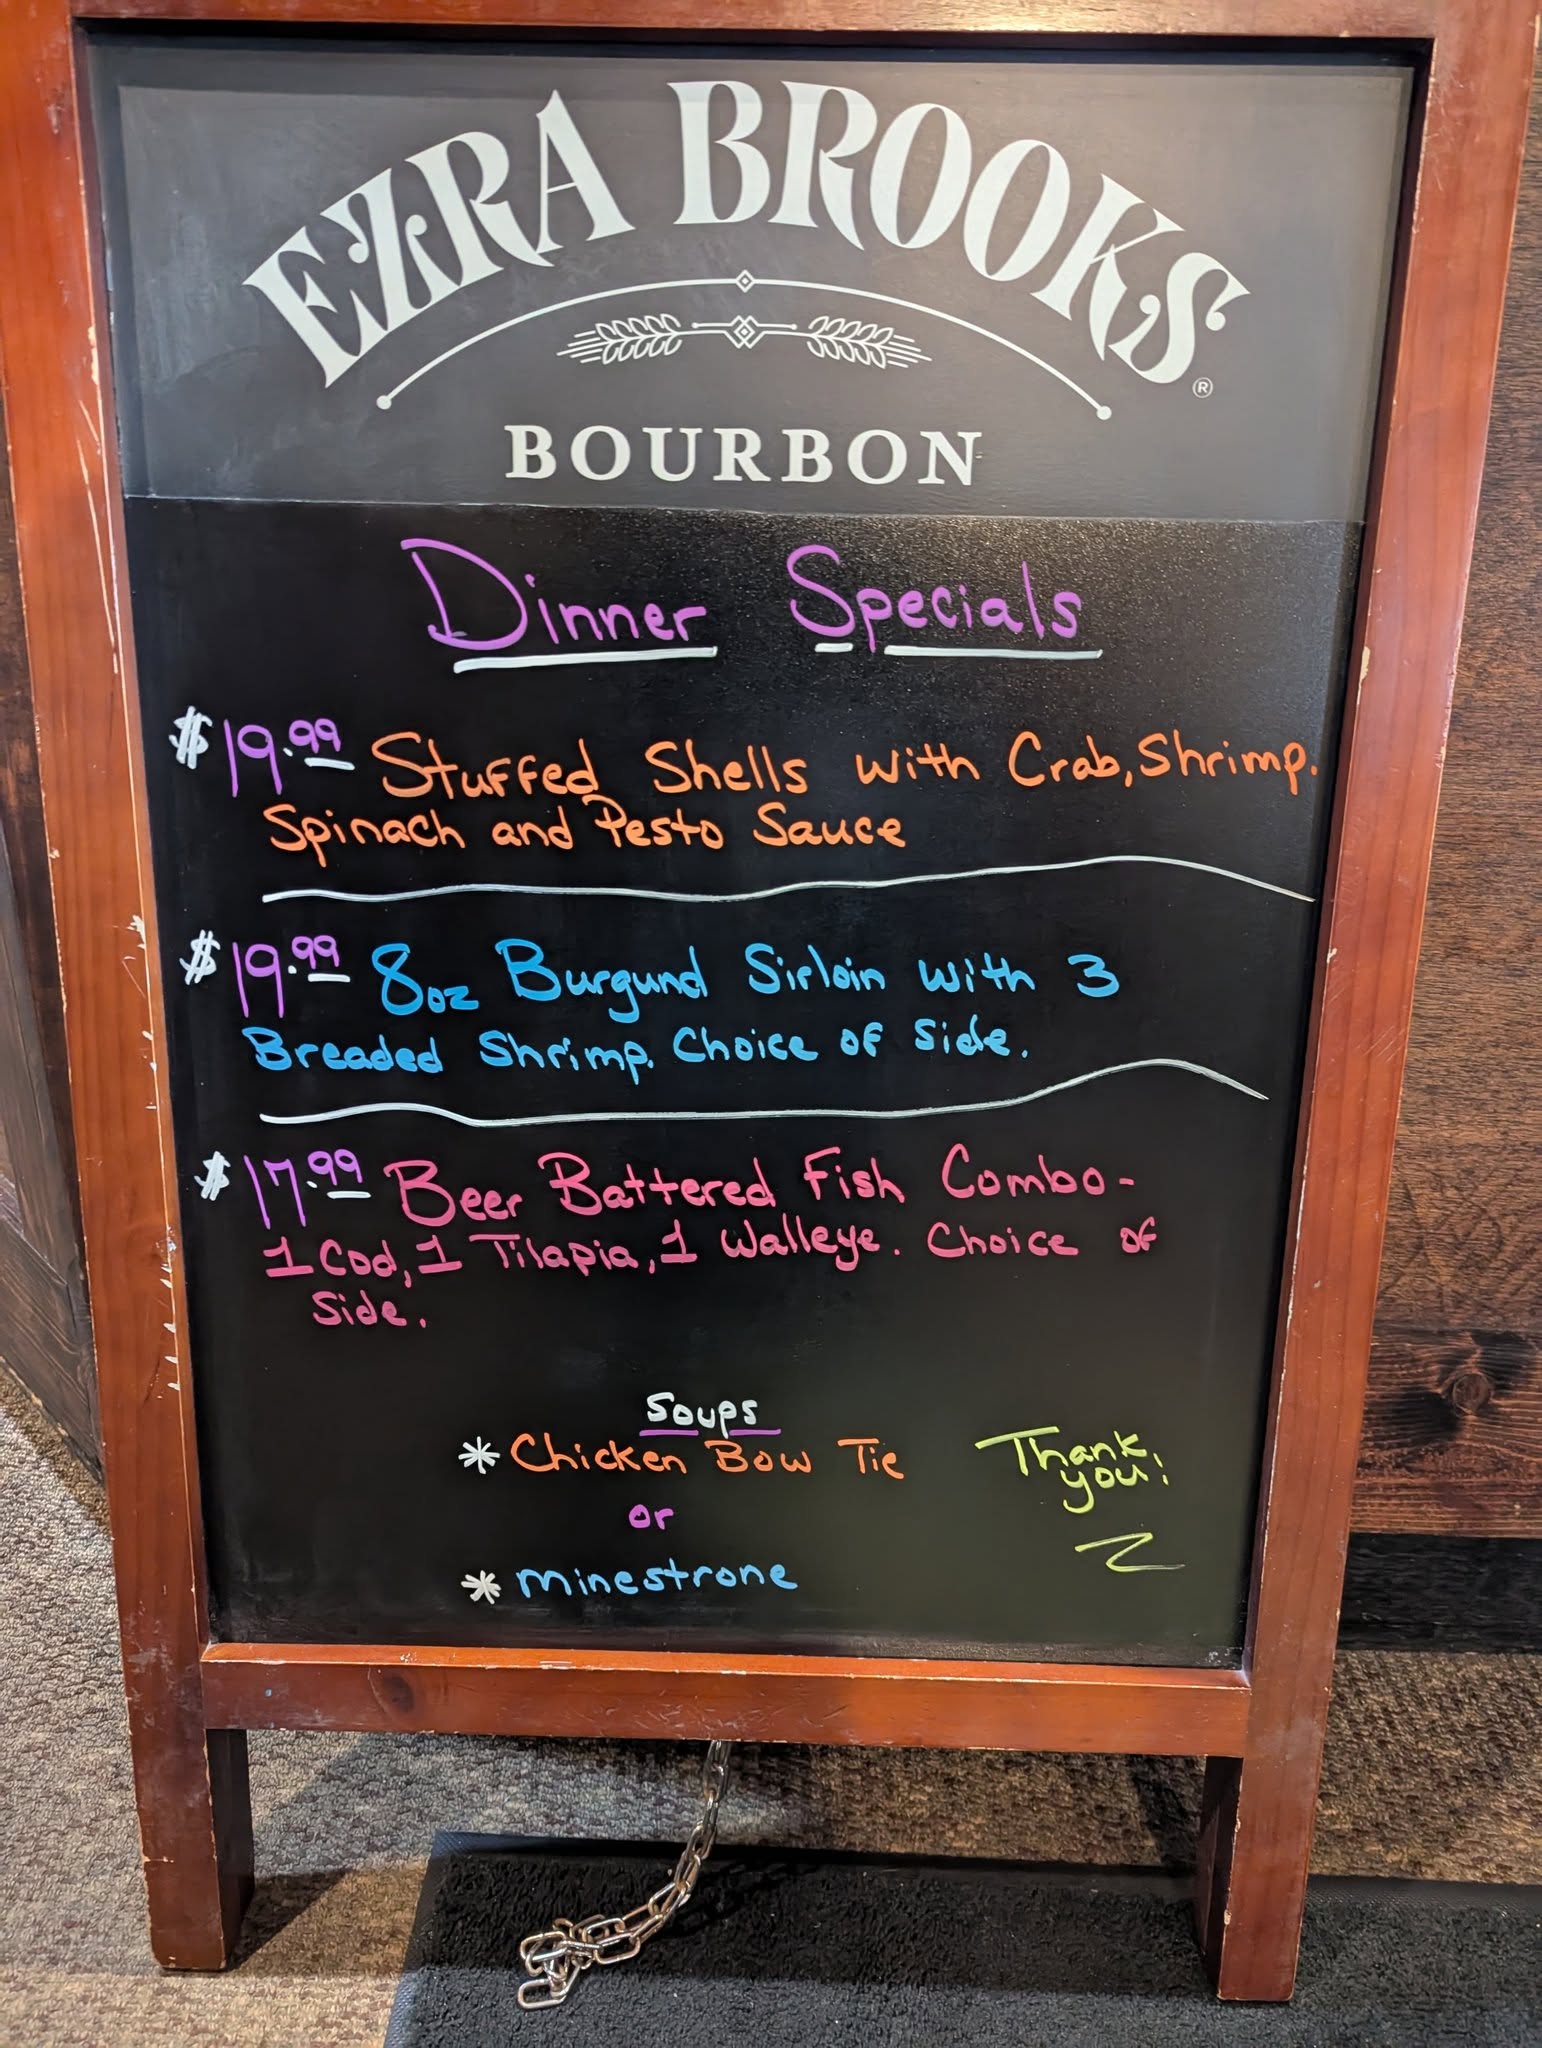 EZRA BROOKS®
BOURBON
Dinner Specials
$19.99 Stuffed Shells with Crab, Shrimp.
Spinach and Pesto Sauce
$19.99 8oz Burgund Sirloin with 3
Breaded Shrimp. Choice of Side.
$17.99 Beer Battered Fish Combo-
1 Cod, 1 Tilapia, 1 Walleye. Choice of
Side.
Soups
* Chicken Bow Tie
or
* minestrone
Thank
you!